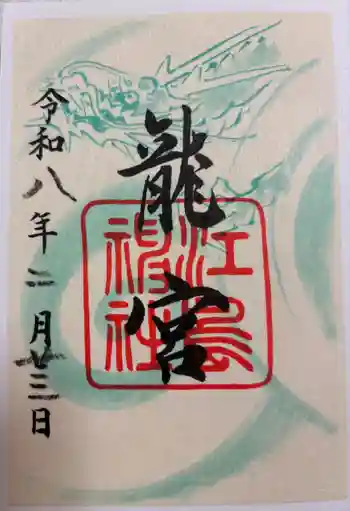 龍宮
江島神社
令和八年二月廿三日